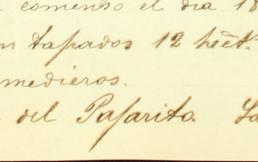 comenzo el dia 18
n tapados 12 hect.
medieros.
del Pajarito. La